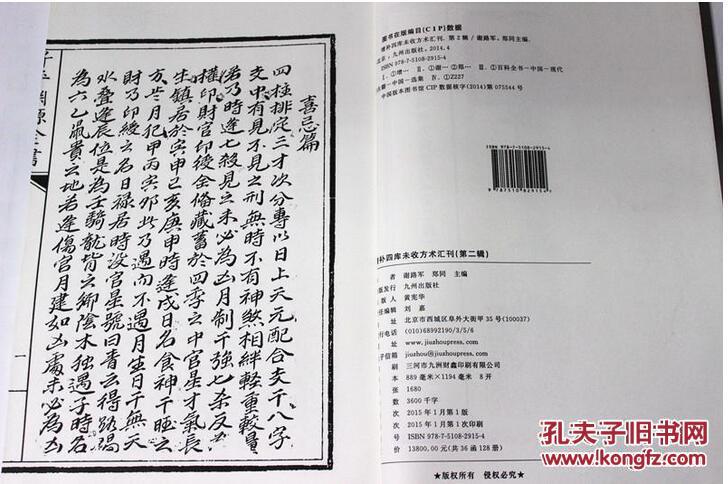 喜忌篇
四柱排定三才次分專以日上天元配合支干八字
支中有見不見之形無時不有神煞相絆輕重較量
若乃時逢七殺見之未必為凶月制干強七杀反
權印財官印綬全備藏蓄於四季之中官星才氣長
生鎮居於寅申巳亥庚申時逢戊日名食神干旺之
方岁月犯甲丙寅卯此乃遇而不遇月生日干無天
財乃印綬之名日禄居時没官星號曰青云得路陽
水叠逢辰位是為壬騎龍背之鄉陰木独遇子時名
為六乙鼠貴之地若逢傷官月建如凶處未必為凶
图书在版编目(CIP)数据
增补四库未收方术汇刊.第2辑/谢路军,郑同主编.
北京:九州出版社,2014.4
ISBN 978-7-5108-2915-4
Ⅰ.①增… Ⅱ.①谢…②郑… Ⅲ.①百科全书-中国-现代
-中国-选集 Ⅳ.①Z227
中国版本图书馆CIP数据核字(2014)第075544号
ISBN 978-7-5108-2915-4
9787510829154
补四库未收方术汇刊(第二辑)
者 谢路军 郑同 主编
版发行 九州出版社
版人 黄宪华
任编辑 刘嘉
址 北京市西城区阜外大街甲35号(100037)
行电话 (010)68992190/3/5/6
www.jiuzhoupress.com
子信箱 jiuzhou@jiuzhoupress.com
刷 三河市九洲财鑫印刷有限公司
本 889毫米×1194毫米 8开
张 1680
数 3600千字
次 2015年1月第1版
次 2015年1月第1次印刷
号 ISBN 978-7-5108-2915-4
价 13800.00元(共36函128册)
★版权所有 侵权必究★
孔夫子旧书网
www.kongfz.com